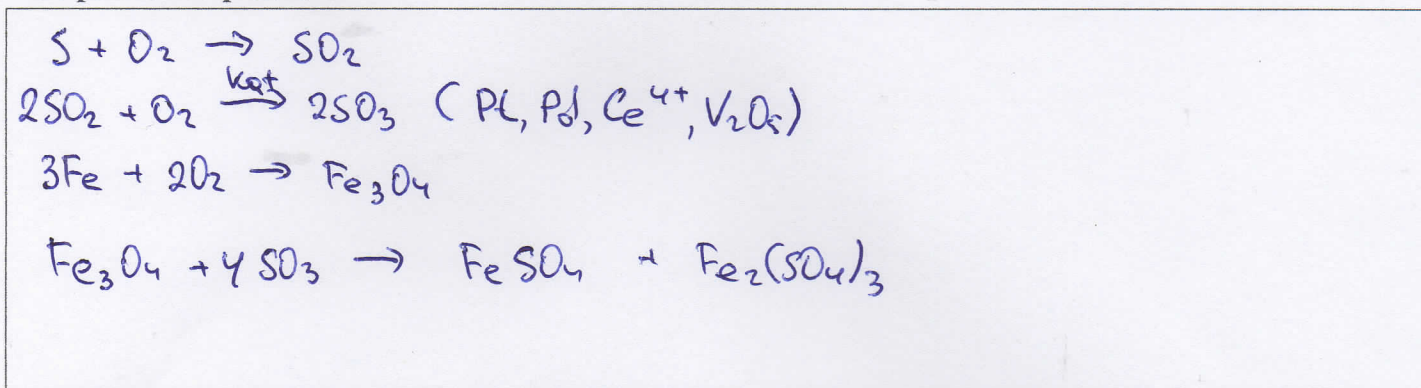 S + O₂ → SO₂
2SO₂ + O₂ →(kat) 2SO₃ (Pt, Pd, Ce⁴⁺, V₂O₅)
3Fe + 2O₂ → Fe₃O₄
Fe₃O₄ + 4SO₃ → FeSO₄ + Fe₂(SO₄)₃